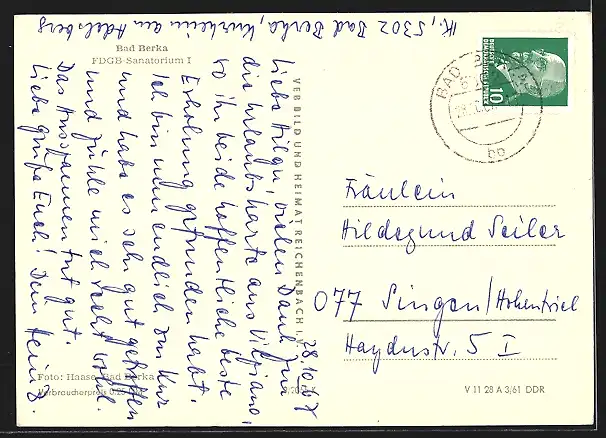 K., 5302 Bad Berka, Kurheim am Adelsberg
Bad Berka
FDGB-Sanatorium I
28.10.67
Liebe Hilgu, vielen Dank für
die Urlaubskarte aus
wo ihr beide hoffentliche beste
Erholung gefunden habt.
Ich bin nun endlich zur Kur
und habe es sehr gut getroffen
und fühle mich recht wohl.
Das Ausspannen tut gut.
Liebe Grüße Euch! Dein Heinz.
VEB BILD UND HEIMAT REICHENBACH I. V.
Foto: Haase, Bad Berka
Verbraucherpreis 0,25
DEUTSCHE
DEMOKRATISCHE REPUBLIK
10
BAD BERKA
Fräulein
Hildegund Seiler
077 Singen/Hohentwiel
Haydnstr. 5 I
V 11 28 A 3/61 DDR